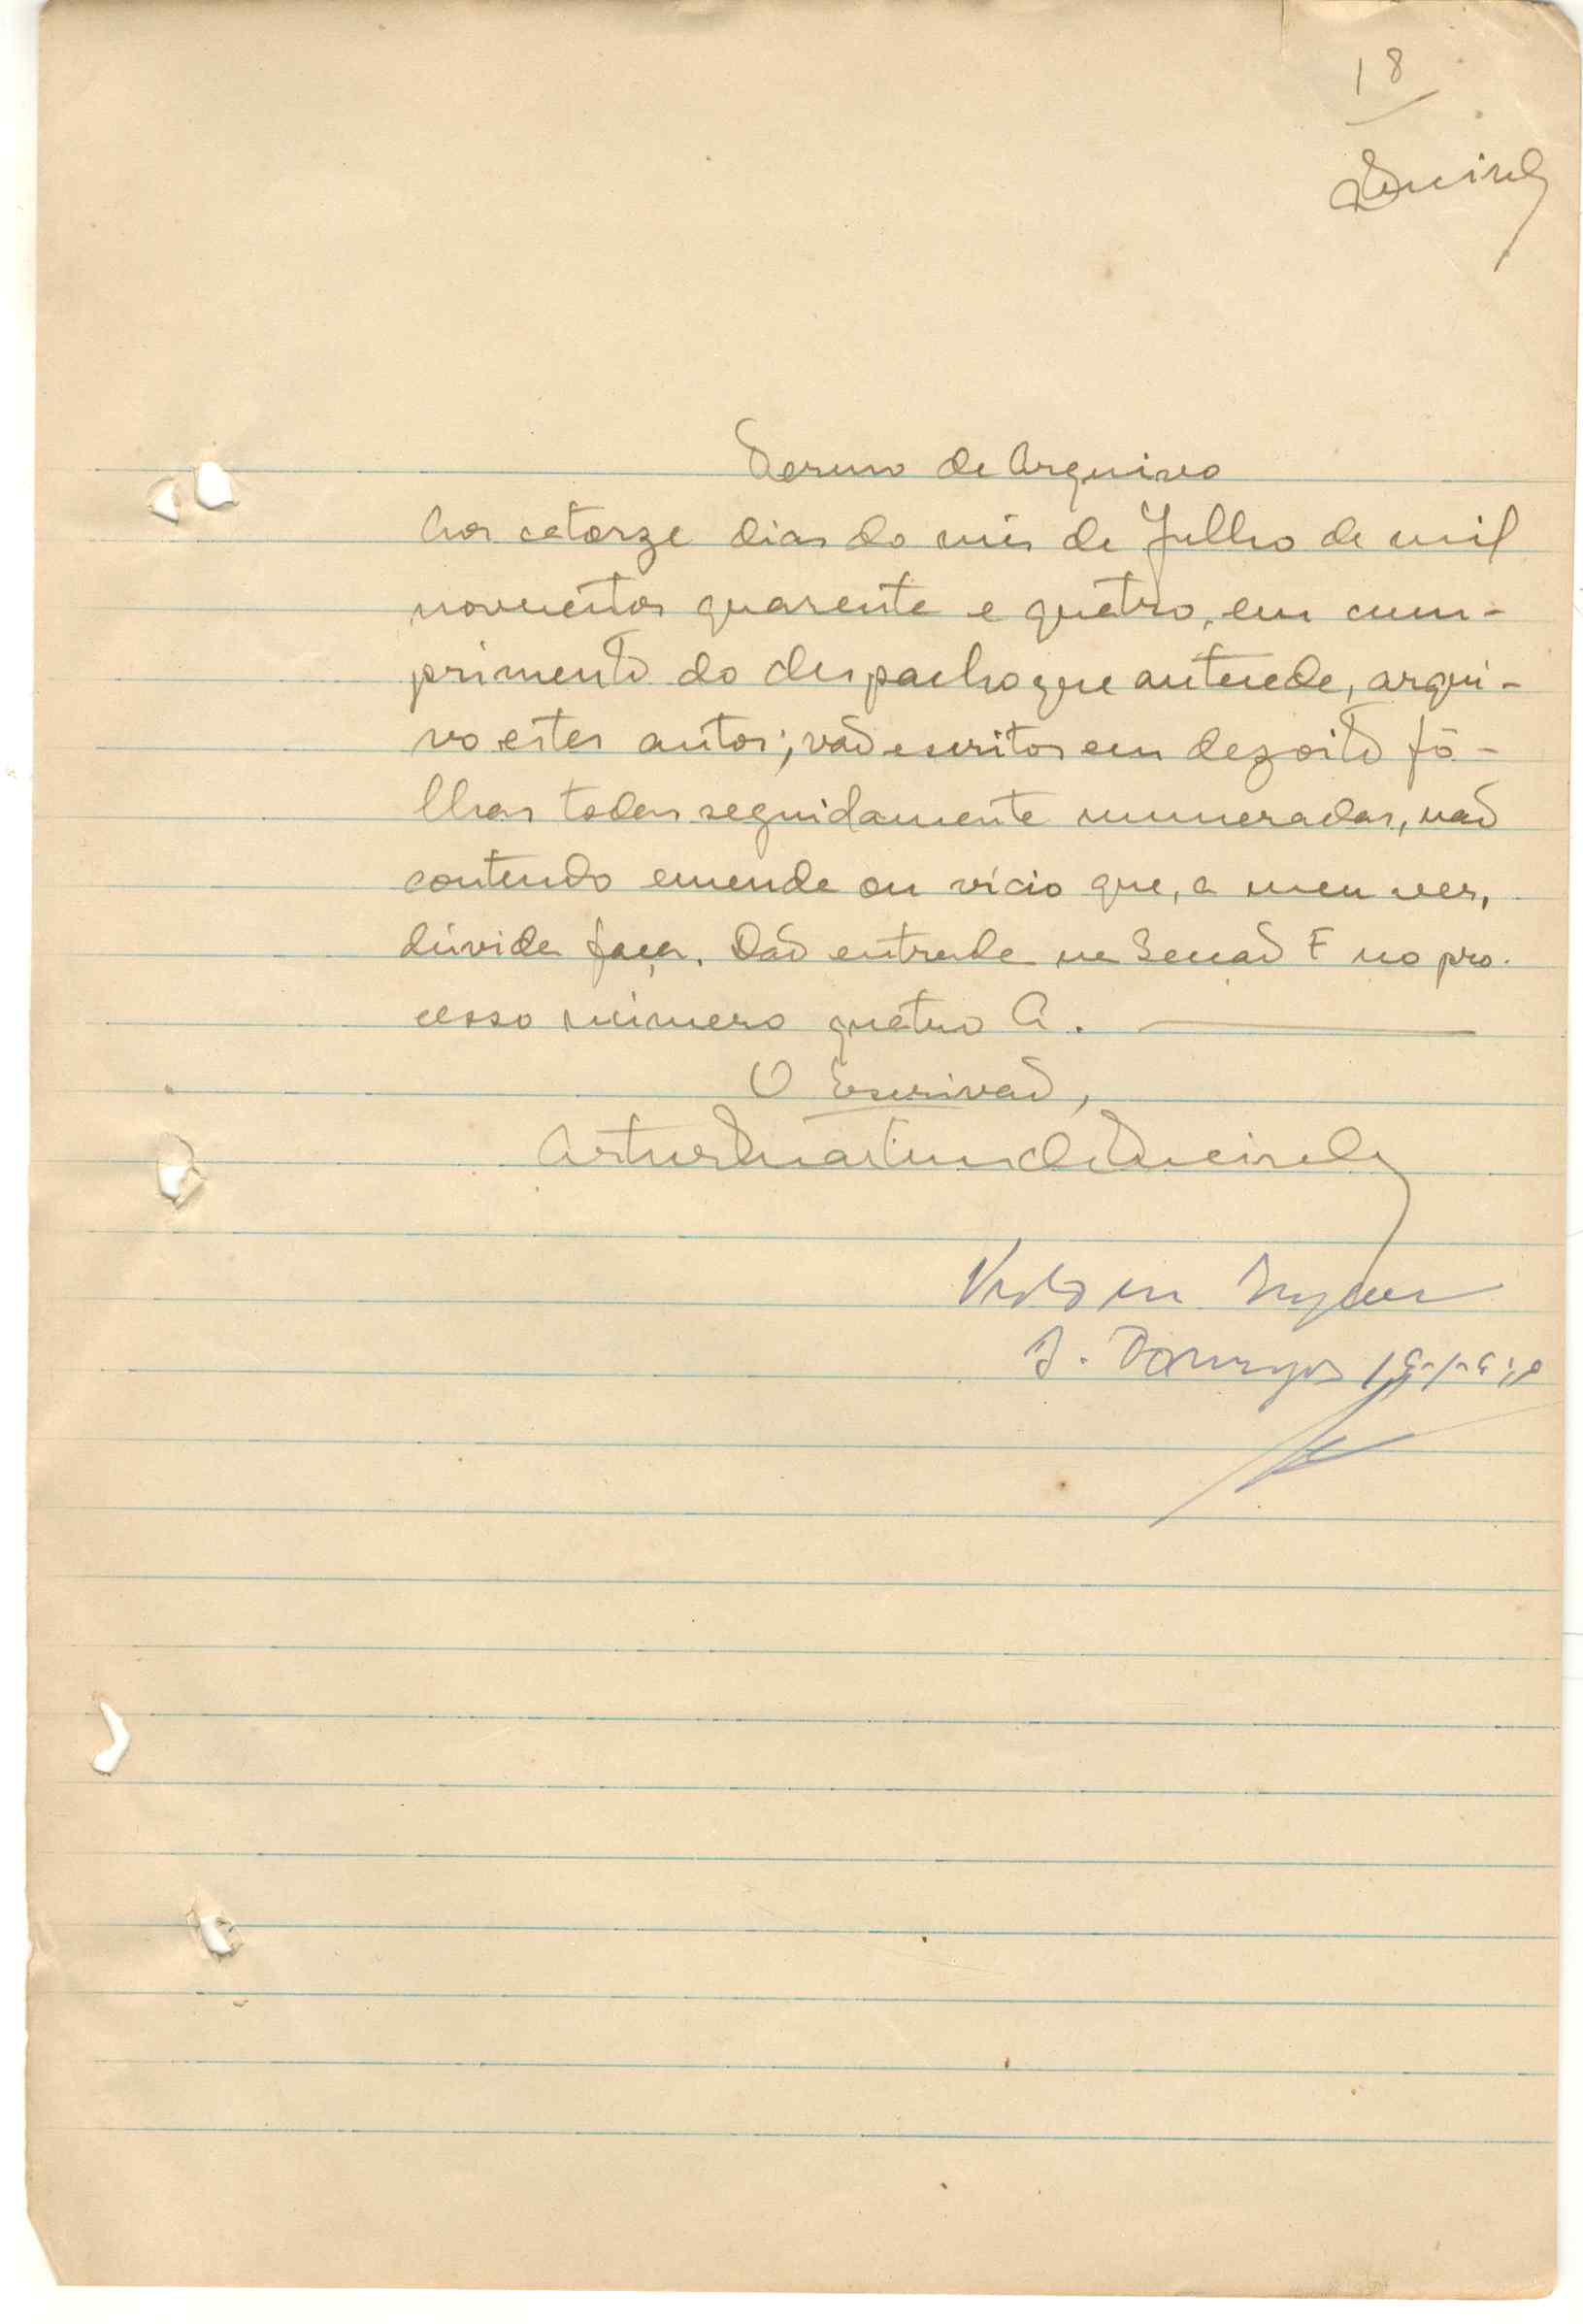 18
Termo de Arquivo
Aos catorze dias do mês de Julho de mil
novecentos quarenta e quatro, em cum-
primento do despacho que antecede, arqui-
vo estes autos; vão escritos em dezoito fô-
lhas todas seguidamente numeradas, não
contendo emenda ou vício que, a meu ver,
dúvida faça. Dão entrada na Secção F no pro-
cesso número quatro A.
O Escrivão,
Artur Martins de
Visto em